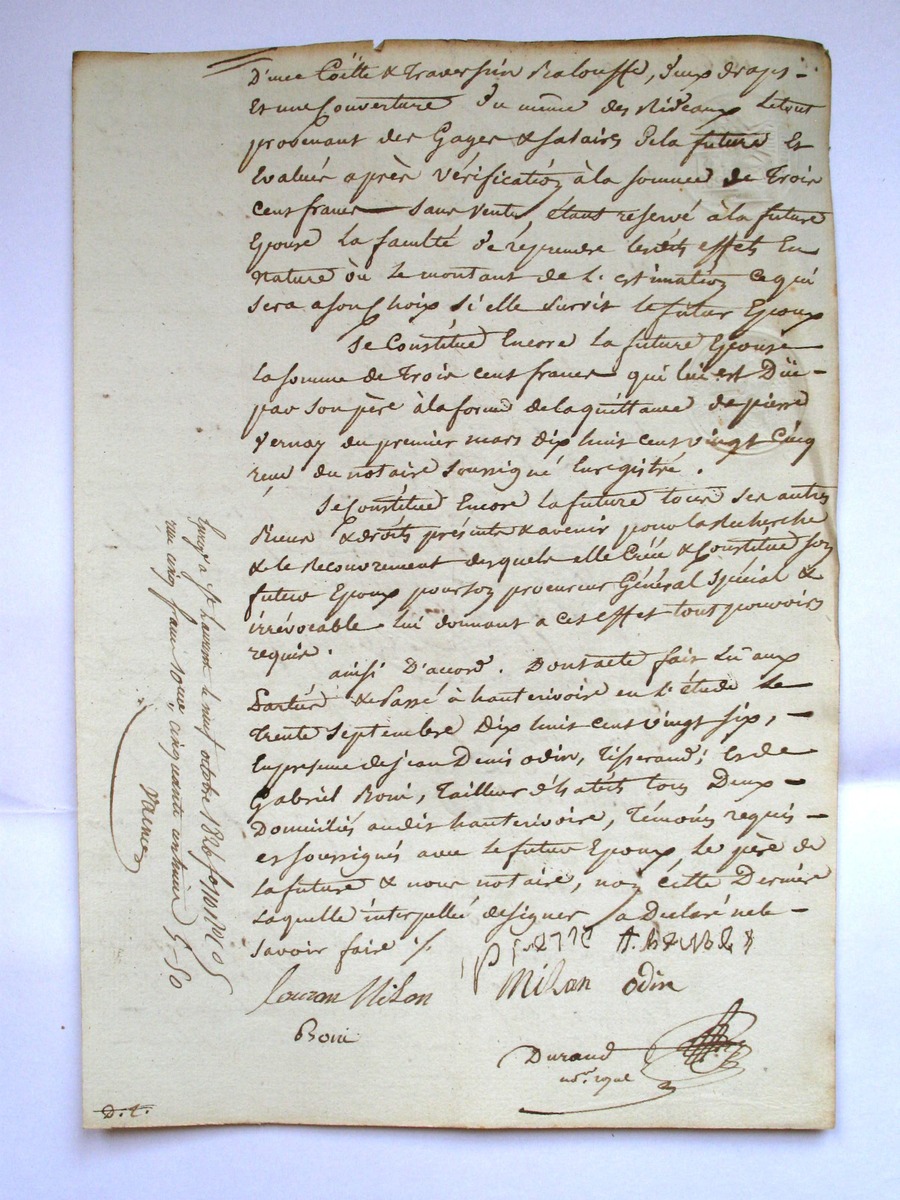 D'une Coitte & Traversin Balouffe, deux draps -
Et une Couverture du même des Rideaux le tout
provenant des Gages & Salaires de la future Et
Evalués après vérification à la somme de Trois
cent francs sans vente étant reservé à la future
Epouse la faculté de réprendre lesdits effets En
nature où le montant de l'estimation ce qui
sera a son Choix si elle Survit le futur Epoux
Se Constitue Encore la future Epouse
la somme de Trois cent francs qui lui est Düe -
par son père à la forme de la quittance de pierre
Vernay du premier mars dix huit cent vingt Cinq
reçue du notaire Soussigné Enregistré.
Se Constitue Encore la future tous ses autres
Biens & droits présents & avenir pour la Recherche
& le Recouvrement desquels elle Crée & Constitue son
futur Epoux pour son procureur Général Spécial &
irrévocable lui donnant a cet effet tous pouvoirs
requis.
ainsi D'accord. Dont acte fait Lû aux
Parties & Passé à hauterivoire en l'étude le
Trente Septembre Dix huit cent vingt Six, -
En presence de jean Denis odin, Tisserand; Et de
Gabriel Boni, Tailleur d'habits tous Deux -
Domiciliés audit hauterivoire, Témoins requis -
et Soussignés avec le futur Epoux, le père de
la future & nous notaire, non cette Dernière
laquelle interpellée de signer a Declaré ne le -
Savoir faire ./.
Milon
Milan odin
Boni
Durand
nore. royal
D. t.
Enreg. à St Laurent le neuf octobre 1826
reçu cinq francs cinquante centimes 5-50